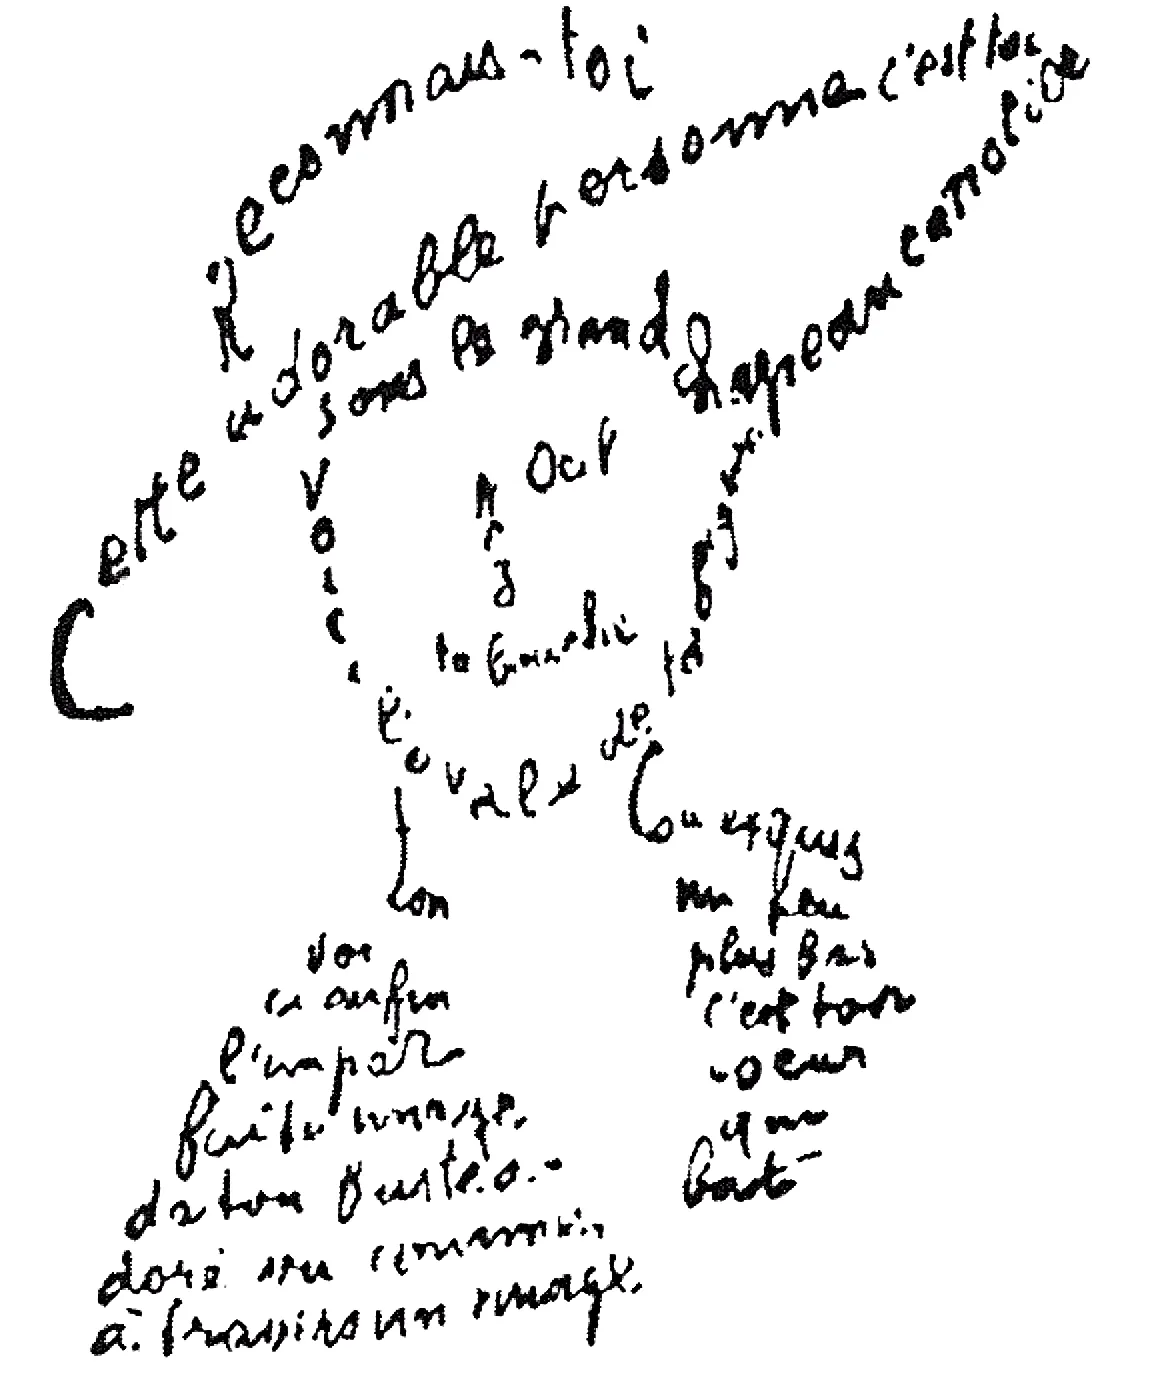 Reconnais-toi
Cette adorable personne c'est toi
sous le grand chapeau canotier
Œil
Nez
ta bouche
Voici
l'ovale de
ta figure
ton
Cou exquis
un peu
plus bas
c'est ton
coeur
qui
bat
Voi
ci enfin
l'impar
faite image
de ton buste a
doré vu comme
à travers un nuage